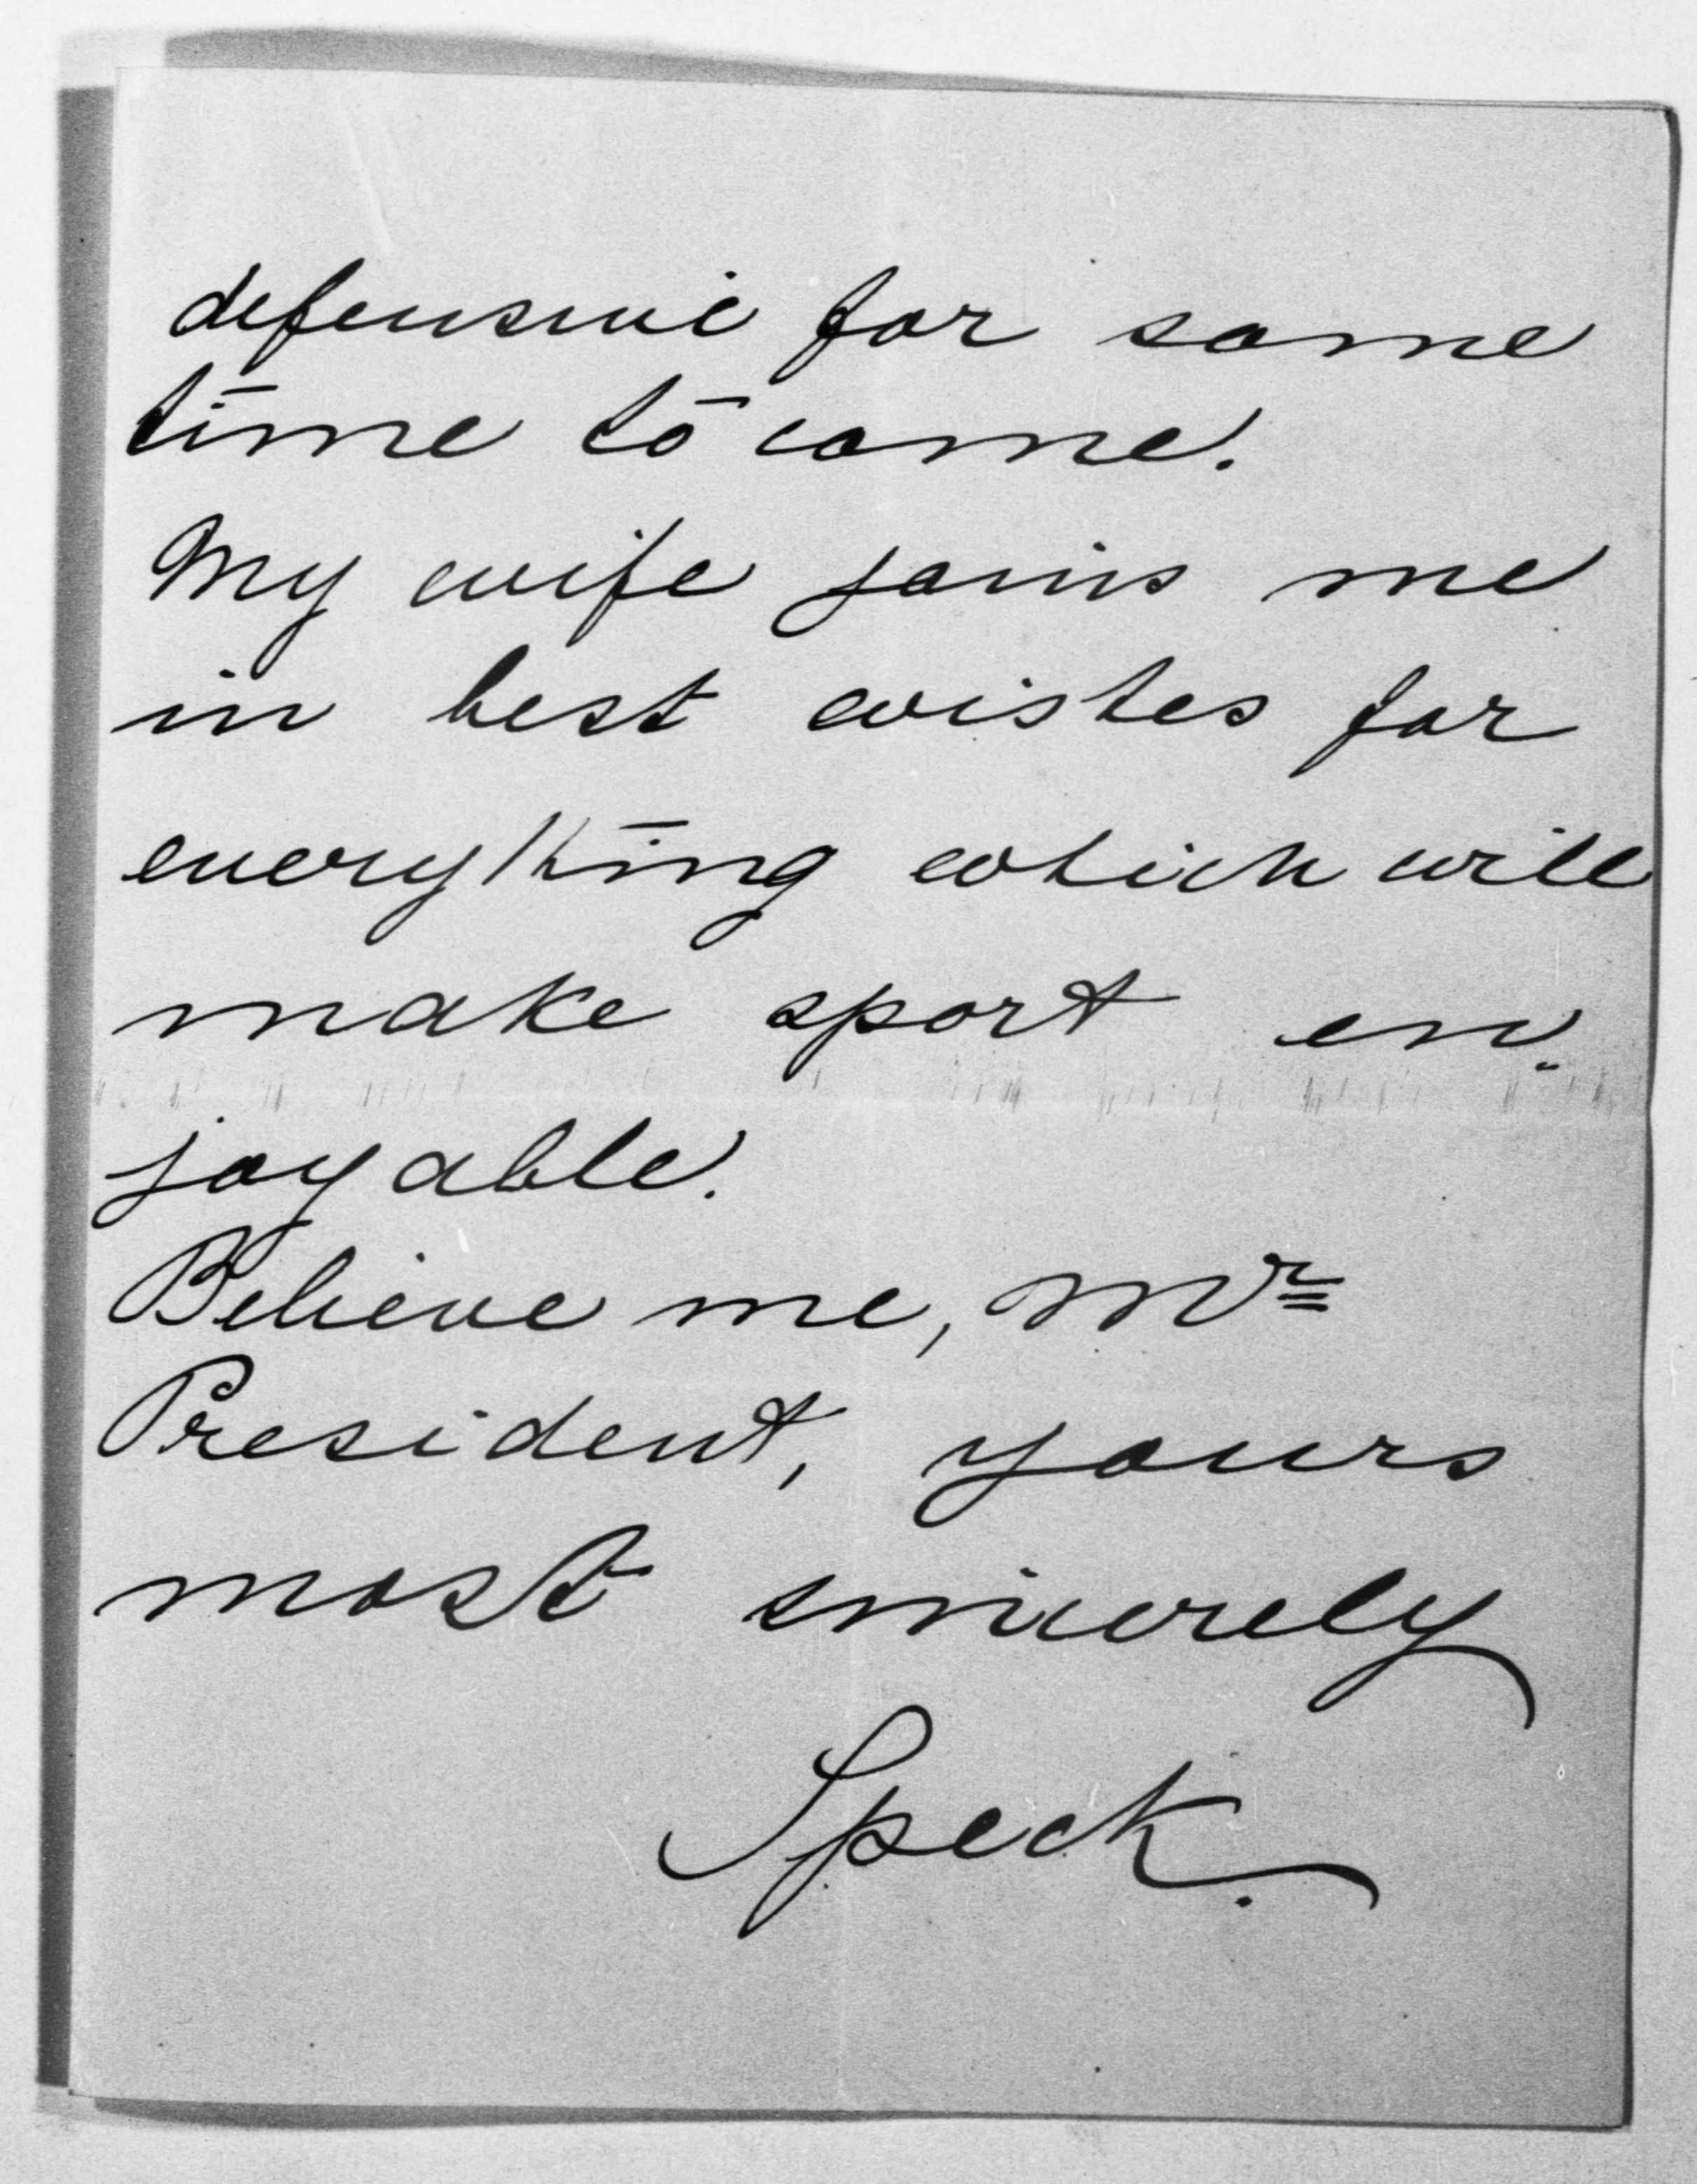 defensive for some
time to come.
My wife joins me
in best wishes for
everything which will
make sport en-
joyable.
Believe me, Mr
President, yours
most sincerely
Speck.